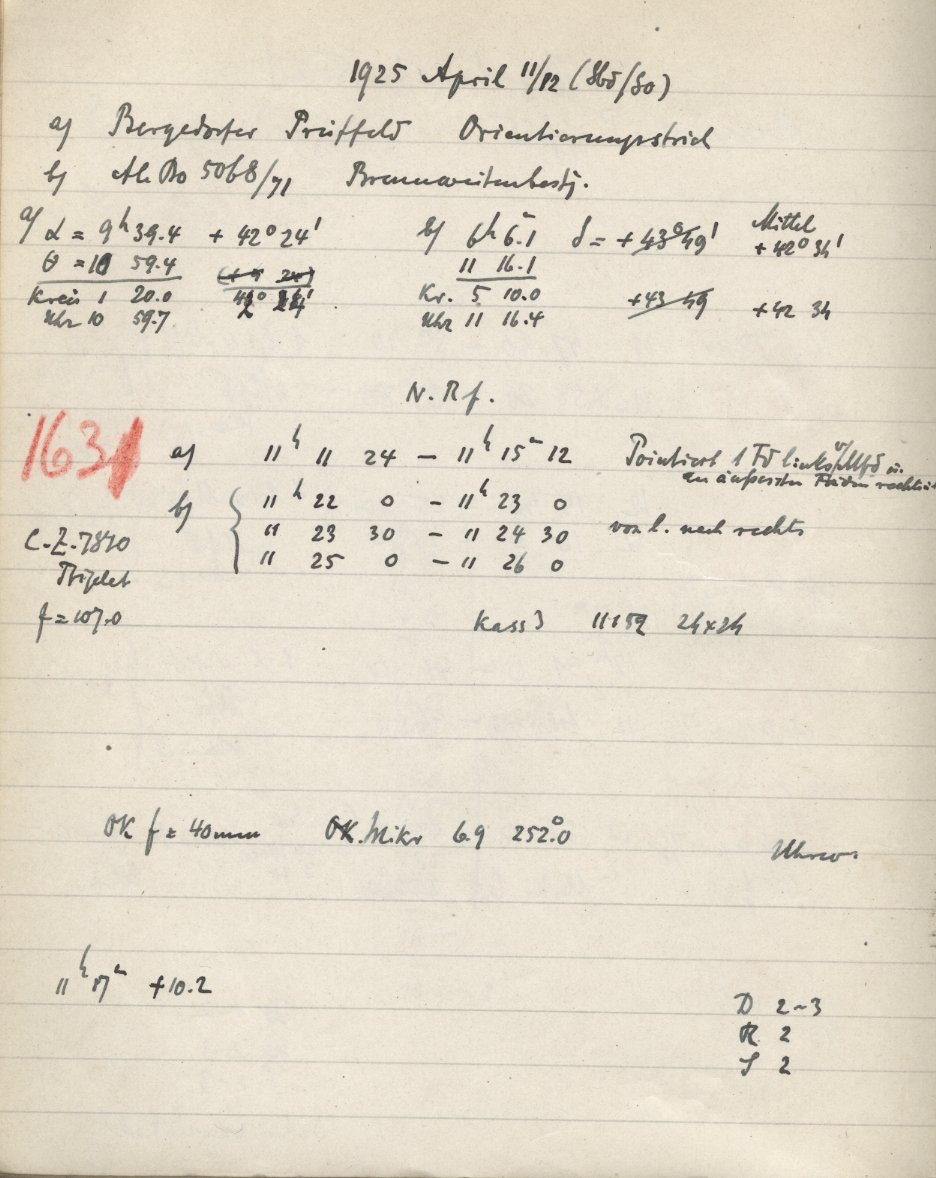 1925 April 11/12 (Sbd/So)
a) Bergedorfer Prüffeld Orientierungsstrich
b) Ali Bo 5068/71 Brennweitenbestg.
a) α = 9h 39.4 + 42° 24' b) 6h 6.1 δ = +43° 49' Mittel +42° 34'
θ = 10 59.4 11 16.1
Kreis 1 20.0 42° 24' Kr. 5 10.0 +43 49 +42 34
Uhr 10 59.7 Uhr 11 16.4
N. Rf.
1631
a) 11h 11 24 – 11h 15m 12 Pointiert 1 Fd links v/Mfd u.
an äußersten Faden rechts
b) 11h 22 0 – 11h 23 0
" 23 30 – 11 24 30 von l. nach rechts
" 25 0 – 11 26 0
C.Z. 7840
Triplet
f = 107.0
Kass 3 11152 24x24
OK f = 40mm OK. Mikr 6.9 252.°0
Uhrw.
11h 17m +10.2
D 2-3
R 2
S 2